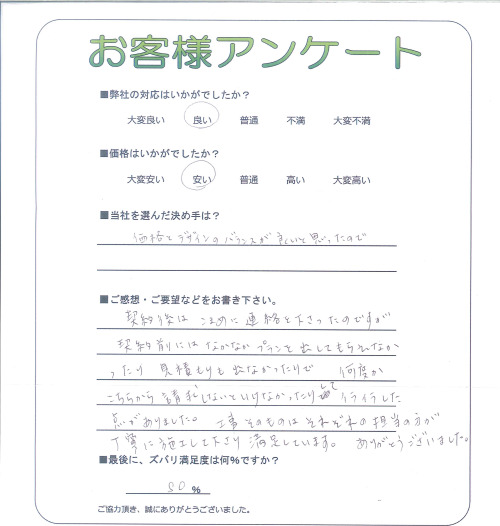 お客様アンケート
■弊社の対応はいかがでしたか？
大変良い 良い 普通 不満 大変不満
■価格はいかがでしたか？
大変安い 安い 普通 高い 大変高い
■当社を選んだ決め手は？
価格とデザインのバランスが良いと思ったので
■ご感想・ご要望などをお書き下さい。
契約後は こまめに 連絡を下さったのですが
契約前には なかなか プランを 出してもらえなか
ったり 見積もりも出なかったりで 何度か
こちらから 請求しないといけなかったりして イライラした
点がありました。 工事そのものは それぞれの 担当の方が
丁寧に施工して下さり 満足しています。 ありがとうございました。
■最後に、ズバリ満足度は何%ですか？
80 %
ご協力頂き、誠にありがとうございました。